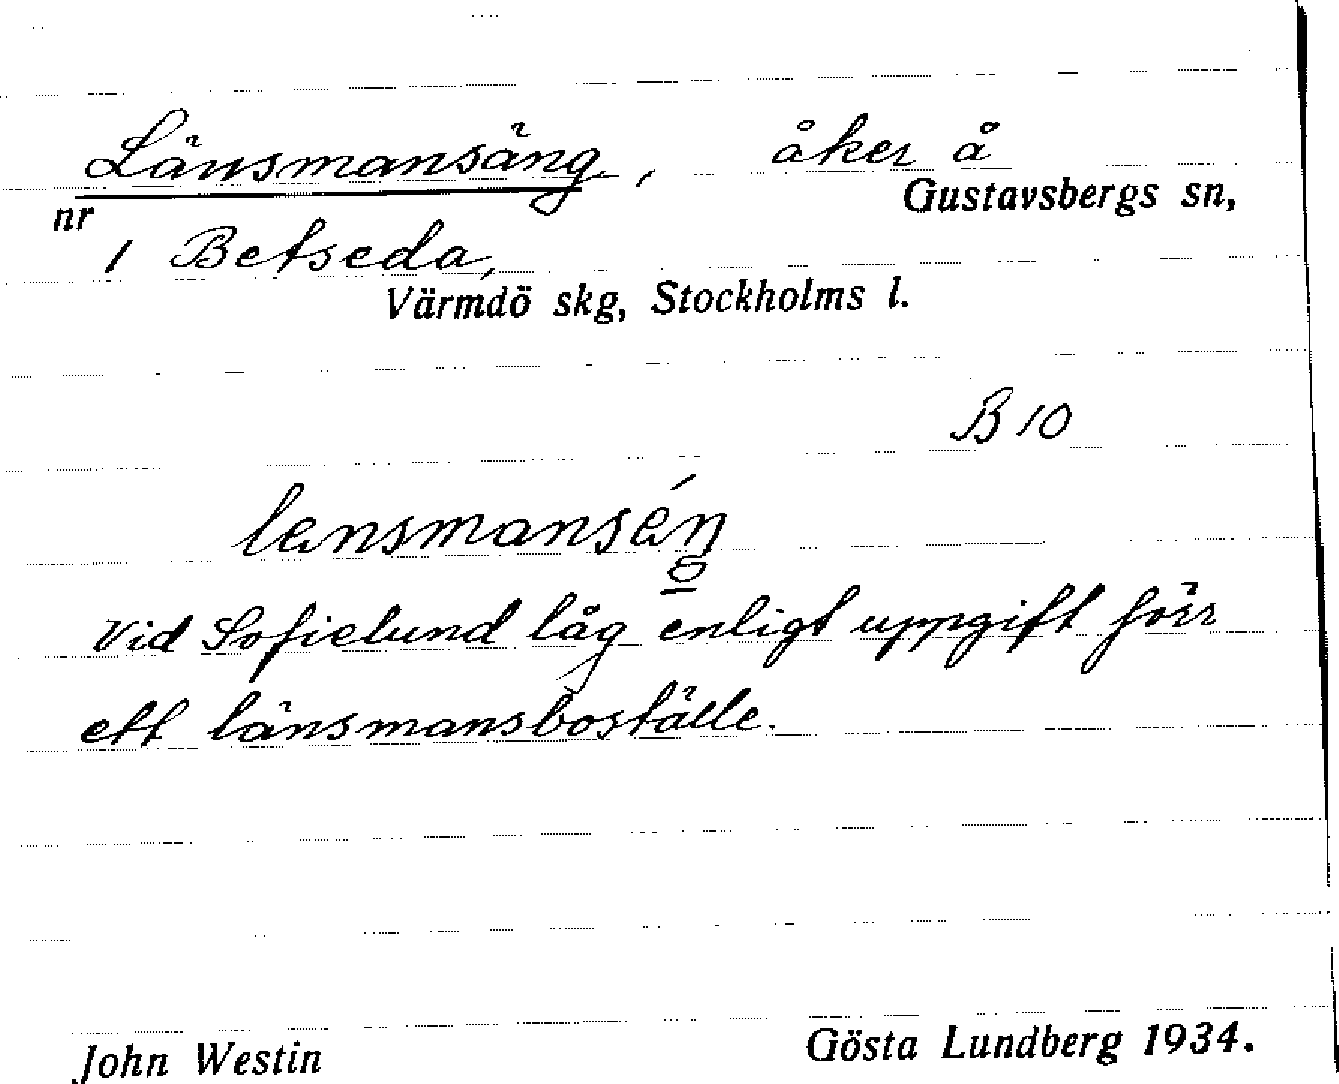 Länsmansäng, åker å
Gustavsbergs sn,
nr
1 Betseda,
Värmdö skg, Stockholms l.
B 10
lensmanséŋ
Vid Sofielund låg enligt uppgift förr
ett länsmansboställe.
John Westin
Gösta Lundberg 1934.